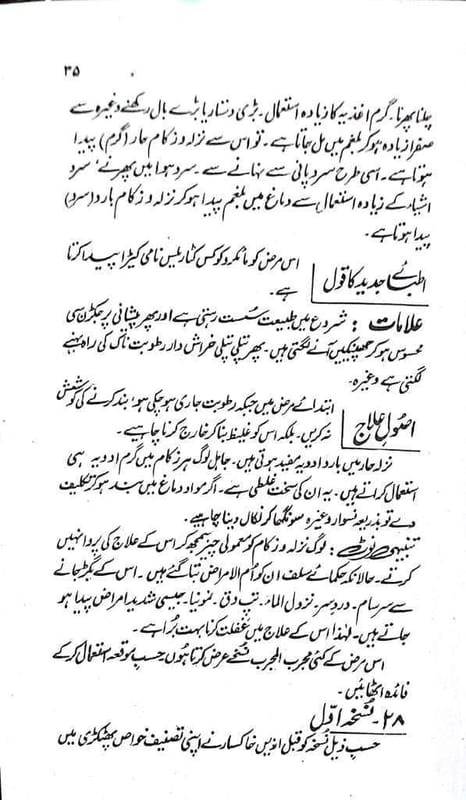 ۳۵
چلنا پھرنا۔ گرم اغذیہ کا زیادہ استعمال۔ بڑی دستار یا بڑے بال رکھنے وغیرہ سے
صفرا زیادہ ہو کر بلغم میں مل جاتا ہے۔ تو اس سے نزلہ و زکام حار (گرم) پیدا
ہوتا ہے۔ اسی طرح سرد پانی سے نہانے سے۔ سرد ہوا میں پھرنے، سرد
اشیاء کے زیادہ استعمال سے دماغ میں بلغم پیدا ہو کر نزلہ و زکام بارد (سرد)
پیدا ہوتا ہے۔
اطبائے جدید کا قول اس مرض کو مائکرو کوکس کٹارلیس نامی کیڑا پیدا کرتا
ہے۔
علامات : شروع میں طبیعت سُست رہتی ہے اور پھر پیشانی پر جکڑن سی
محسوس ہو کر چھینکیں آنے لگتی ہیں۔ پھر پتلی پتلی خراش دار رطوبت ناک کی راہ بہنے
لگتی ہے وغیرہ۔
اصولِ علاج ابتدائے مرض میں جبکہ رطوبت جاری ہو چکی ہو، بند کرنے کی کوشش
نہ کریں۔ بلکہ اس کو غلیظ بنا کر خارج کرنا چاہیے۔
نزلہ حار میں بارد ادویہ مفید ہوتی ہیں۔ جاہل لوگ ہر زکام میں گرم ادویہ ہی
استعمال کراتے ہیں۔ یہ ان کی سخت غلطی ہے۔ اگر مواد دماغ میں بند ہو کر تکلیف
دے تو بذریعہ نسوار وغیرہ سونگھا کر نکال دینا چاہیے۔
تنبیہی نوٹ : لوگ نزلہ و زکام کو معمولی چیز سمجھ کر اس کے علاج کی پروا نہیں
کرتے۔ حالانکہ حکمائے سلف ان کو اُم الامراض بتا گئے ہیں۔ اس کے بگڑ جانے
سے سرسام۔ دردِ سر۔ نزول الماء۔ تپ دق۔ نمونیا۔ جیسی شدید امراض پیدا ہو
جاتے ہیں۔ لہٰذا اس کے علاج میں غفلت کرنا بہت بُرا ہے۔
اس مرض کے کئی مجرب المجرب نسخے عرض کرتا ہوں حسبِ موقعہ استعمال کر کے
فائدہ اٹھائیں۔
۲۸۔ نسخہ اوّل
حسب ذیل نسخہ کو قبل ازیں خاکسار نے اپنی تصنیف خواص پھٹکڑی میں